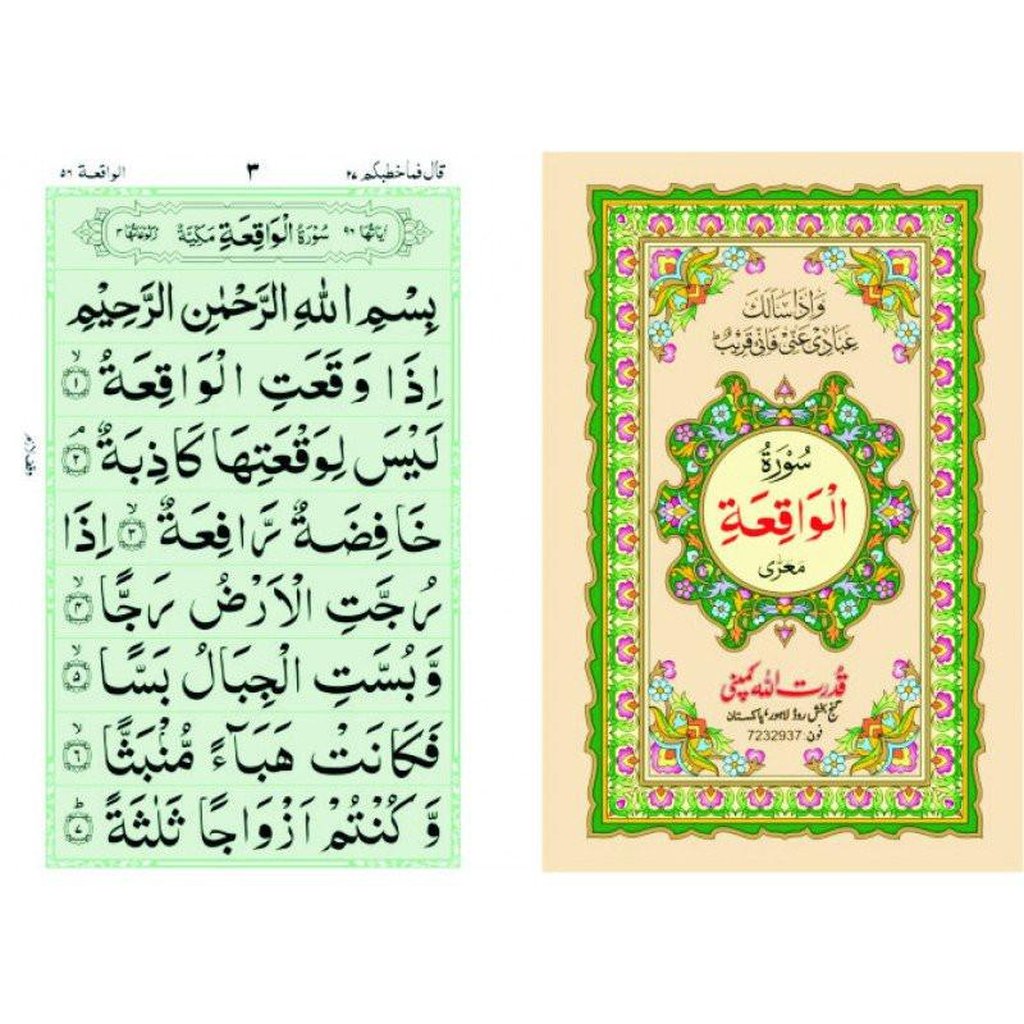 قال فما خطبكم ٢٧ ٣ الواقعة ٥٦
اٰیَاتُهَا ٩٦ سُوْرَةُ الْوَاقِعَةِ مَكِّيَّةٌ رُكُوْعَاتُهَا ٣
بِسْمِ اللهِ الرَّحْمٰنِ الرَّحِيْمِ
اِذَا وَقَعَتِ الْوَاقِعَةُ ۙ﴿١﴾
لَيْسَ لِوَقْعَتِهَا كَاذِبَةٌ ۘ﴿٢﴾
خَافِضَةٌ رَّافِعَةٌ ۙ﴿٣﴾ اِذَا
رُجَّتِ الْاَرْضُ رَجًّا ۙ﴿٤﴾
وَّ بُسَّتِ الْجِبَالُ بَسًّا ۙ﴿٥﴾
فَكَانَتْ هَبَآءً مُّنْۢبَثًّا ۙ﴿٦﴾
وَّ كُنْتُمْ اَزْوَاجًا ثَلٰثَةً ؕ﴿٧﴾
وَاِذَا سَاَلَكَ
عِبَادِیْ عَنِّیْ فَاِنِّیْ قَرِیْبٌ ؕ
سُوْرَةُ
الْوَاقِعَةِ
معرٰی
قُدرت اللہ کمپنی
گنج بخش روڈ لاہور، پاکستان
فون 7232937